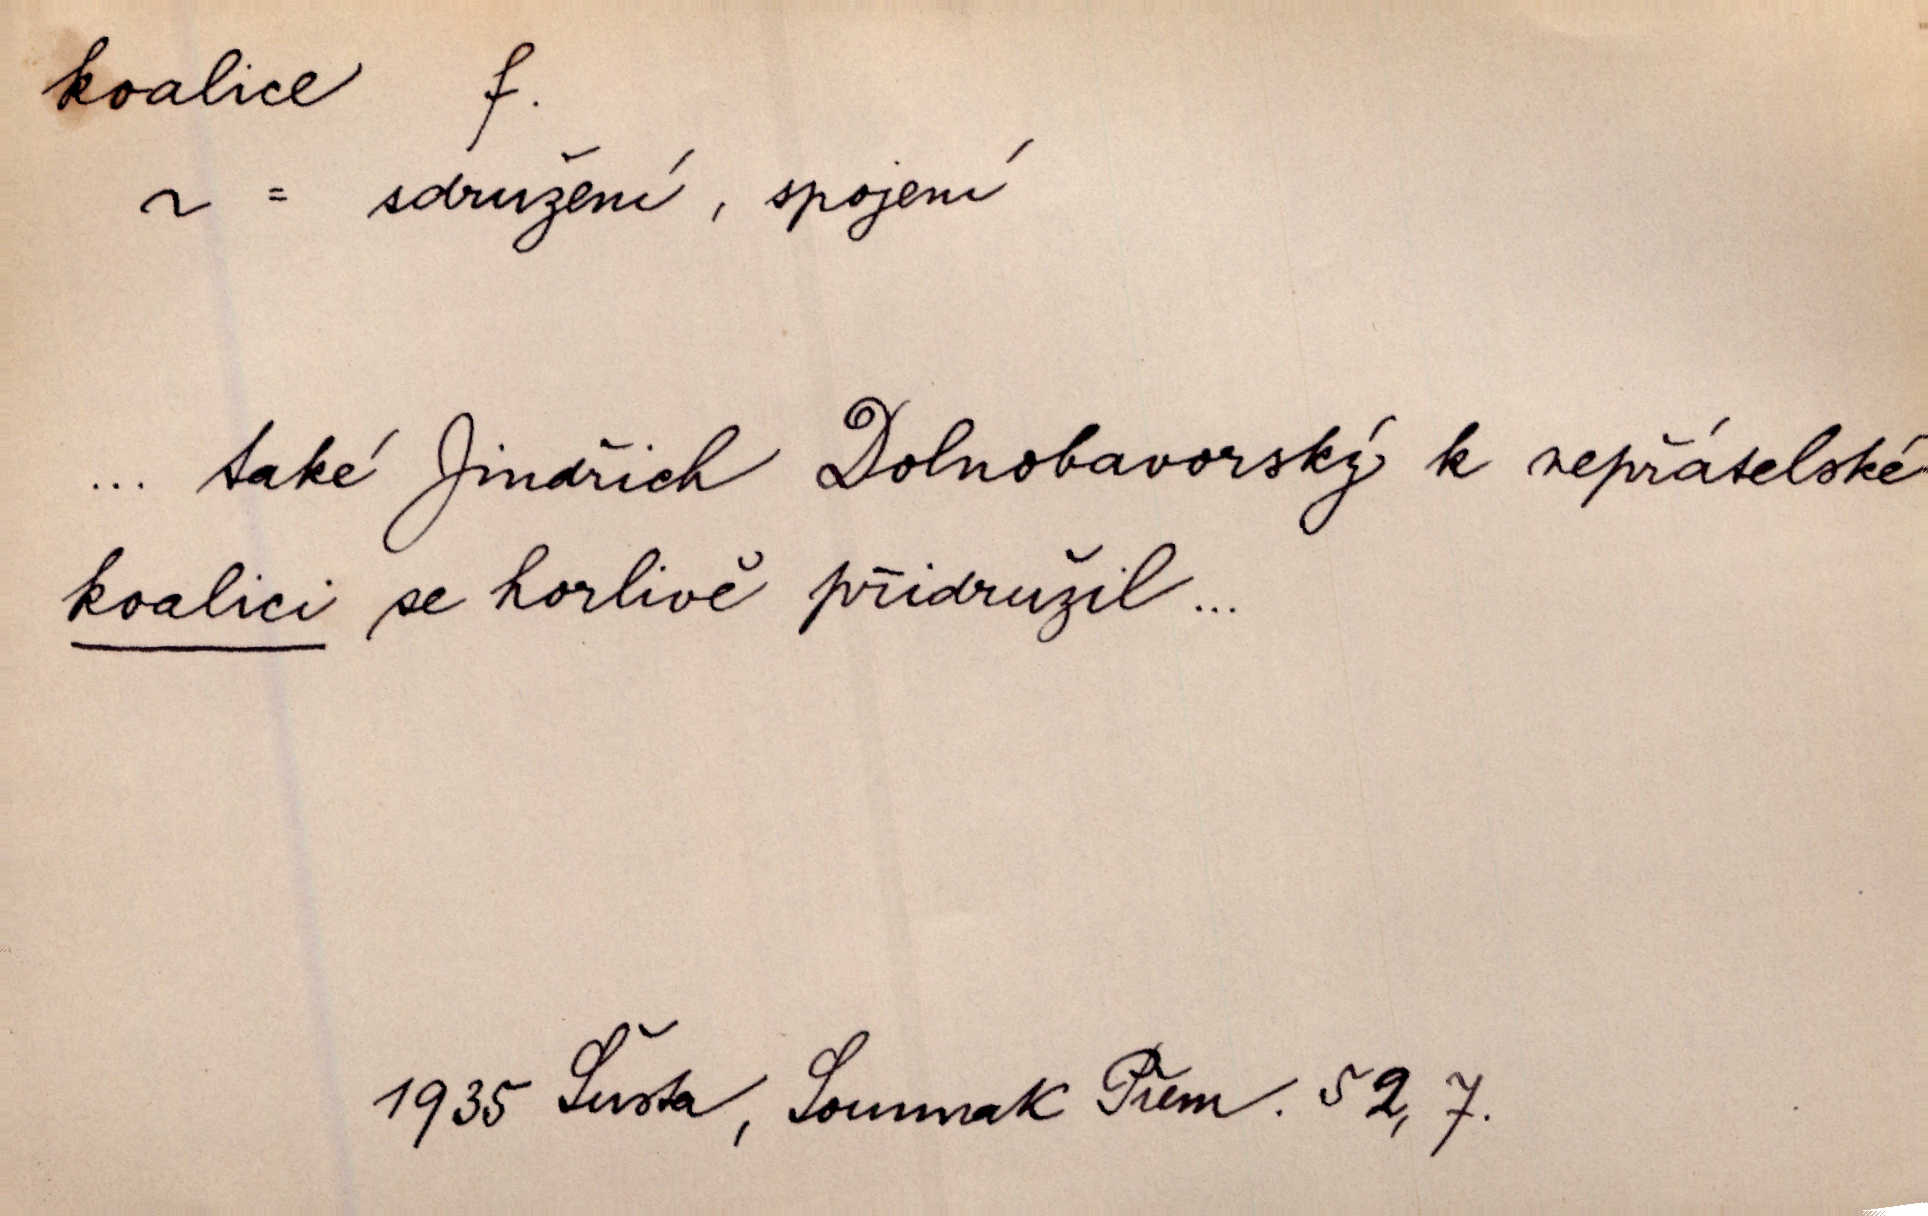 koalice f.
~ = sdružení, spojení
... také Jindřich Dolnobavorský k nepřátelské
koalici se horlivě přidružil...
1935 Šusta, Soumrak Přem. 52, 7.